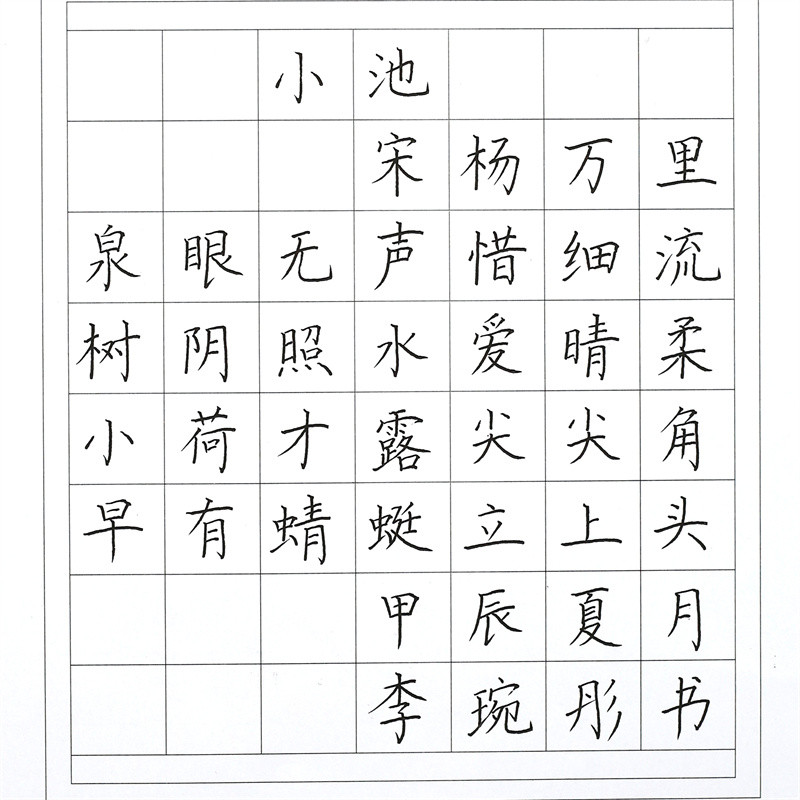 小池
宋杨万里
泉眼无声惜细流
树阴照水爱晴柔
小荷才露尖尖角
早有蜻蜓立上头
甲辰夏月
李琬彤书